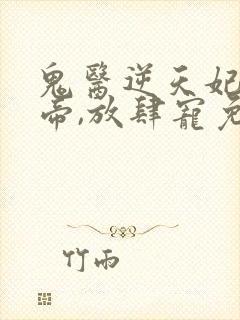 鬼醫逆天妃
帝,放肆寵免
竹雨